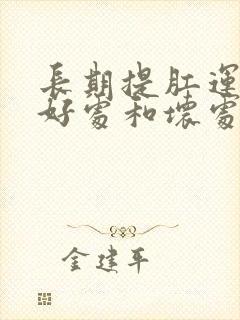 長期提肛運
好處和壞處
金建平